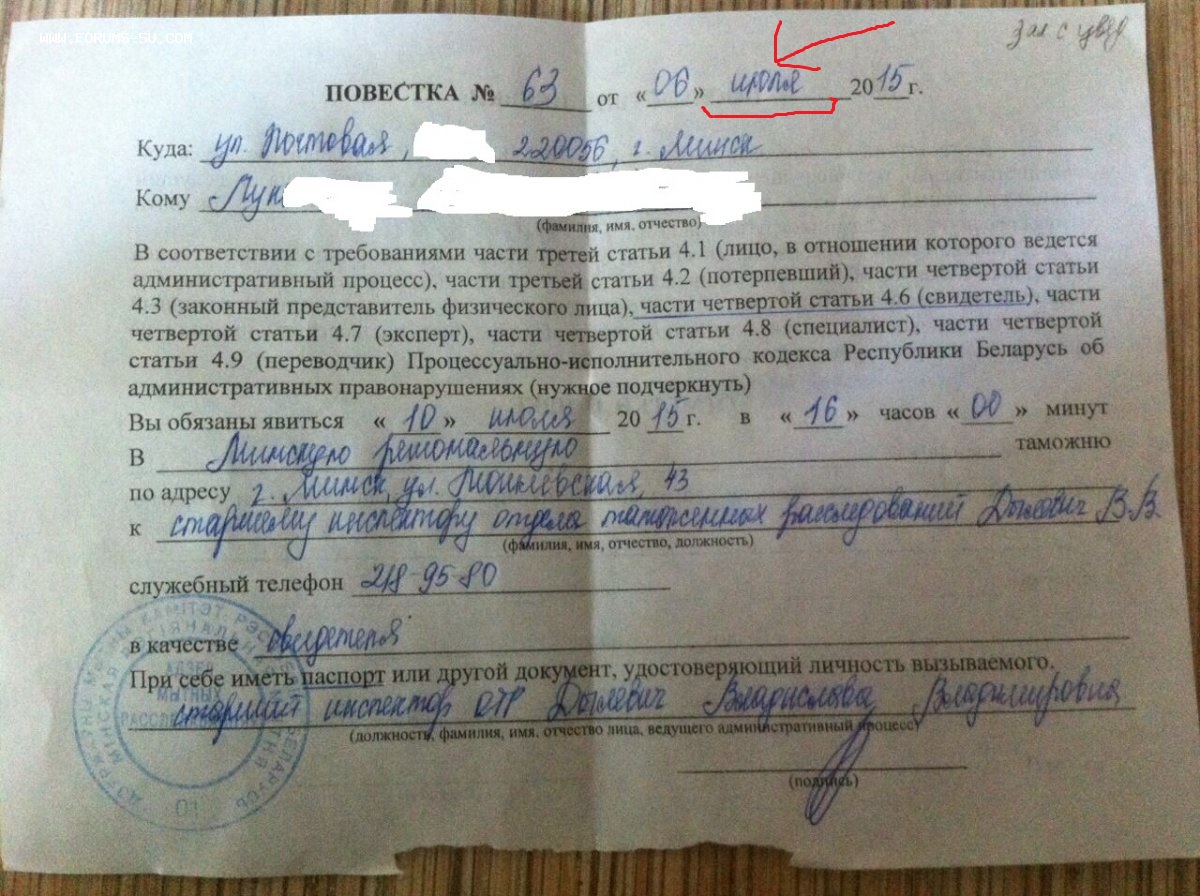 WWW.FORUMS-SU.COM
ПОВЕСТКА № 63 от «06» июля 2015г.
Куда: ул. Почтовая, 220056, г. Минск
Кому Лук
(фамилия, имя, отчество)
В соответствии с требованиями части третей статьи 4.1 (лицо, в отношении которого ведется
административный процесс), части третьей статьи 4.2 (потерпевший), части четвертой статьи
4.3 (законный представитель физического лица), части четвертой статьи 4.6 (свидетель), части
четвертой статьи 4.7 (эксперт), части четвертой статьи 4.8 (специалист), части четвертой
статьи 4.9 (переводчик) Процессуально-исполнительного кодекса Республики Беларусь об
административных правонарушениях (нужное подчеркнуть)
Вы обязаны явиться «10» июля 2015г. в «16» часов «00» минут
В Минскую региональную таможню
по адресу г. Минск, ул. Могилевская, 43
к старшему инспектору отдела таможенных расследований Дылович В.В.
(фамилия, имя, отчество, должность)
служебный телефон 218-95-80
в качестве свидетеля
При себе иметь паспорт или другой документ, удостоверяющий личность вызываемого.
старший инспектор ОТР Дылович Владислава Владимировна
(должность, фамилия, имя, отчество лица, ведущего административный процесс)
(подпись)
МЫТНЫХ
01